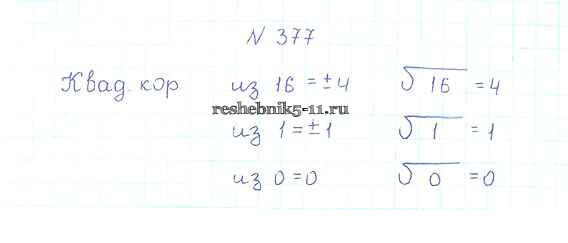 N 377
Квад. кор из 16 = ±4 √16 = 4
reshebnik5-11.ru
из 1 = ±1 √1 = 1
из 0 = 0 √0 = 0